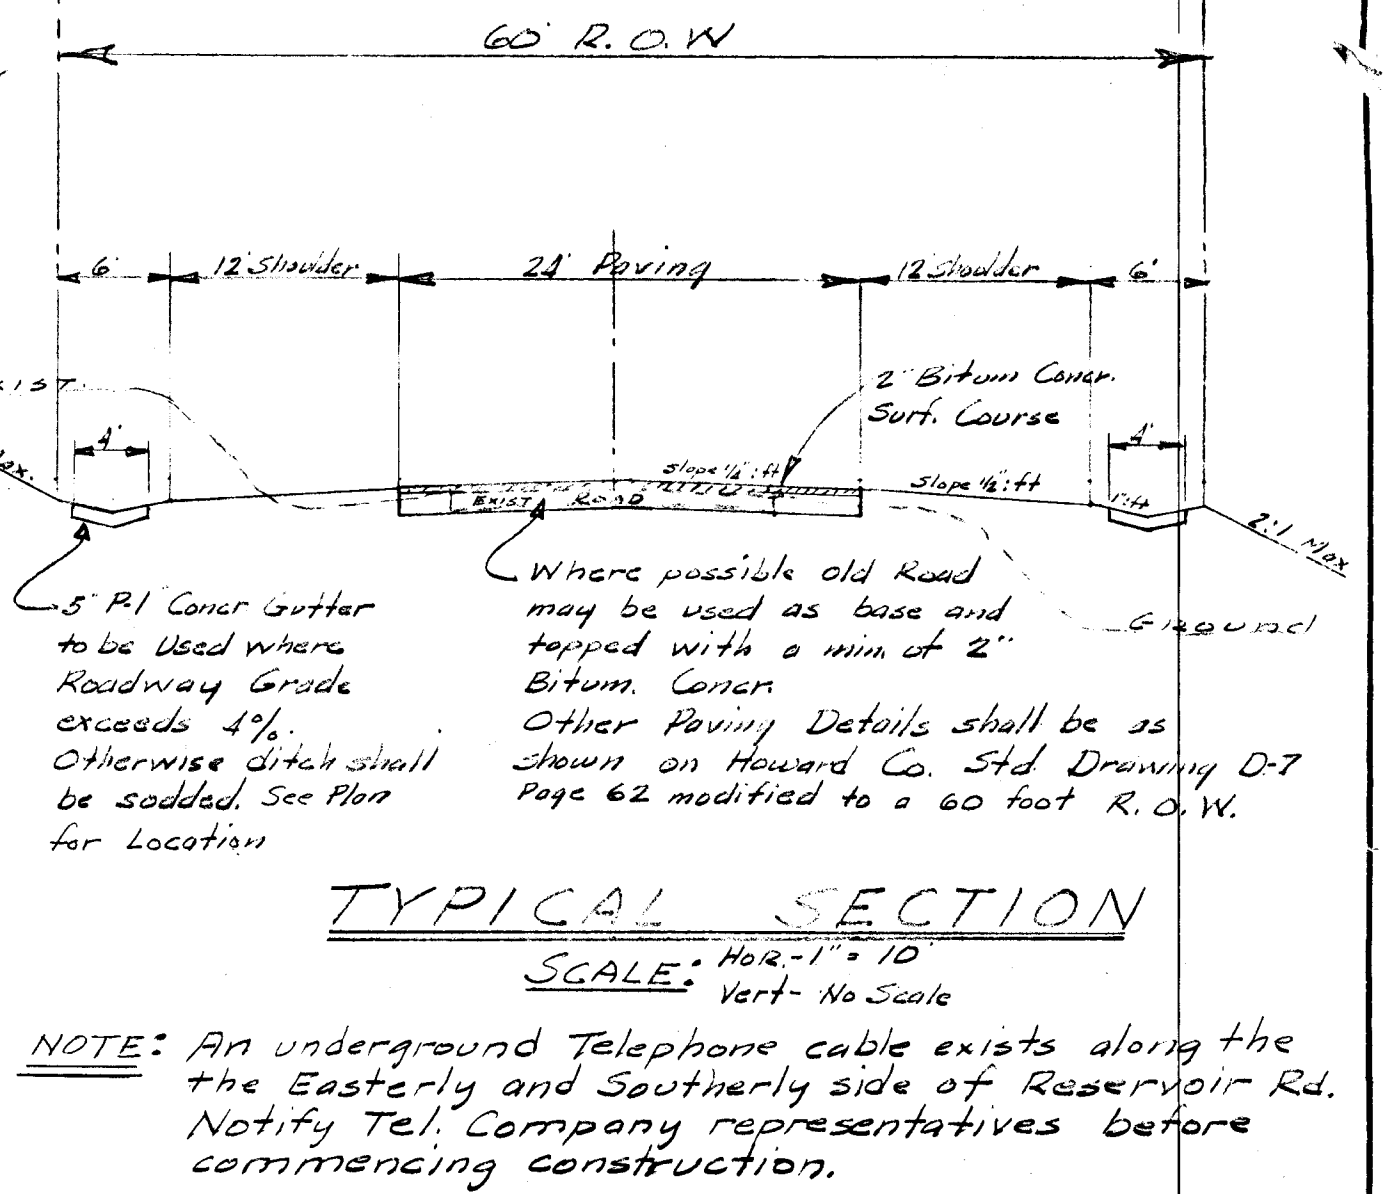 60' R.O.W
6' 12' Shoulder 24' Paving 12' Shoulder 6'
2" Bitum Concr.
Surf. Course
4' 4'
Slope 1/4":ft
Slope 1/2":ft
1":ft
EXIST ROAD
2:1 Max
Ground
5" P-1 Concr Gutter
to be Used where
Roadway Grade
exceeds 4%.
Otherwise ditch shall
be sodded. See Plan
for Location
Where possible old Road
may be used as base and
topped with a min. of 2"
Bitum. Concr.
Other Paving Details shall be as
shown on Howard Co. Std. Drawing D-7
Page 62 modified to a 60 foot R.O.W.
TYPICAL SECTION
SCALE: HOR.-1" = 10'
Vert- No Scale
NOTE: An underground Telephone cable exists along the
the Easterly and Southerly side of Reservoir Rd.
Notify Tel. Company representatives before
commencing construction.